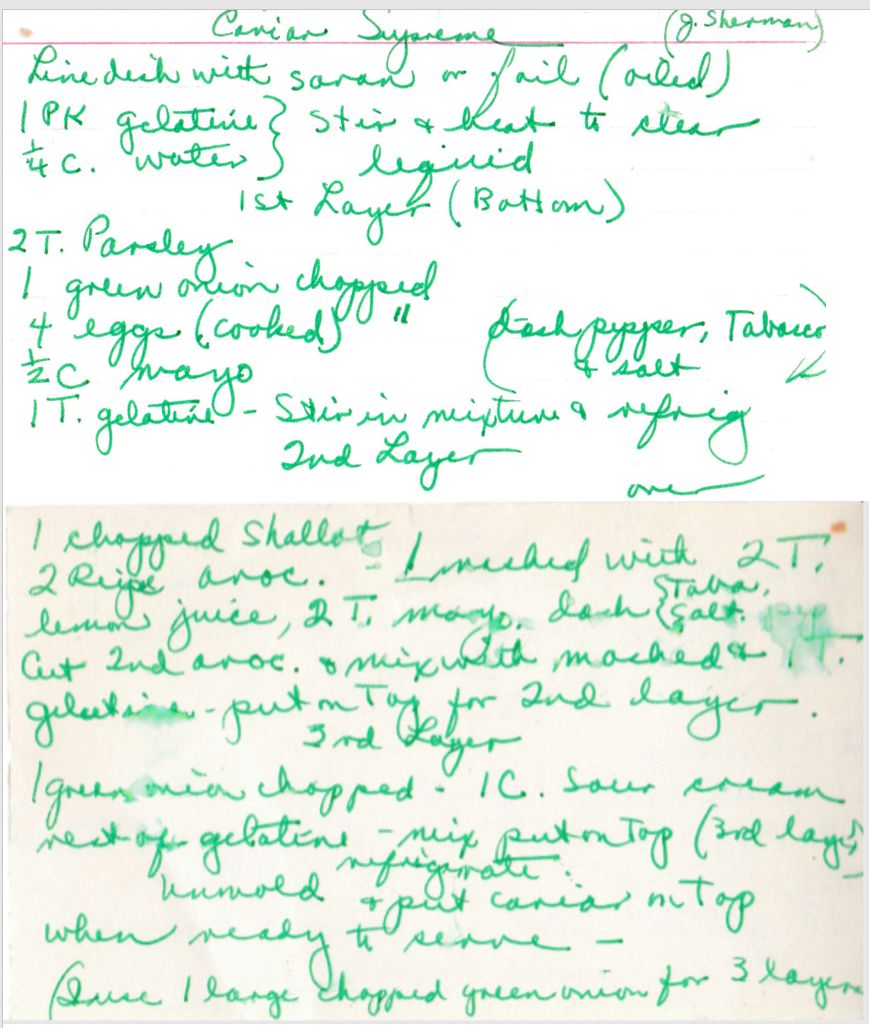 Caviar Supreme (J. Sherman)
Line dish with saran or foil (oiled)
1 PK gelatine } Stir & heat to clear
1/4 C. water } liquid
1st Layer (Bottom)
2 T. Parsley
1 green onion chopped
4 eggs (cooked) "
(dash pepper, Tabasco
1/2 C mayo & salt
1 T. gelatine - Stir in mixture & refrig
2nd Layer
over
1 chopped Shallot
2 Ripe avoc. - 1 mashed with 2 T.
lemon juice, 2 T. mayo. dash { Taba. Salt. pep
Cut 2nd avoc. & mix with mashed & 1 T.
gelatine - put on Top for 2nd layer.
3rd Layer
1 green onion chopped - 1 C. Sour cream
rest of gelatine - mix put on Top (3rd layer)
refrigerate
Unmold & put caviar on Top
when ready to serve -
(I use 1 large chopped green onion for 3 layers